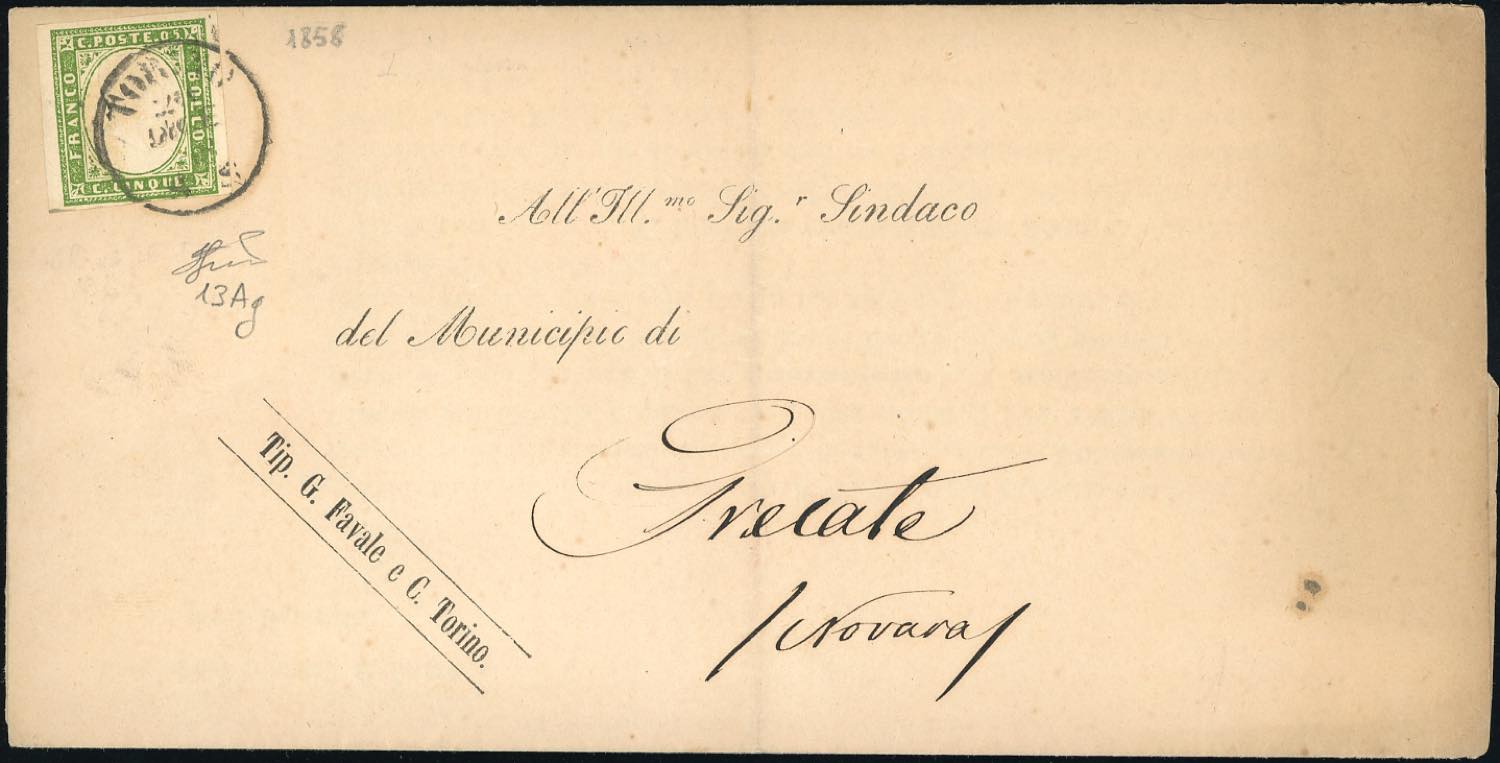 C. POSTE. 05
FRANCO
BOLLO
C. CINQUE
1858
13Ag
All'Ill.mo Sig.r Sindaco
del Municipio di
Trecate
/Novara/
Tip. G. Favale e C. Torino.